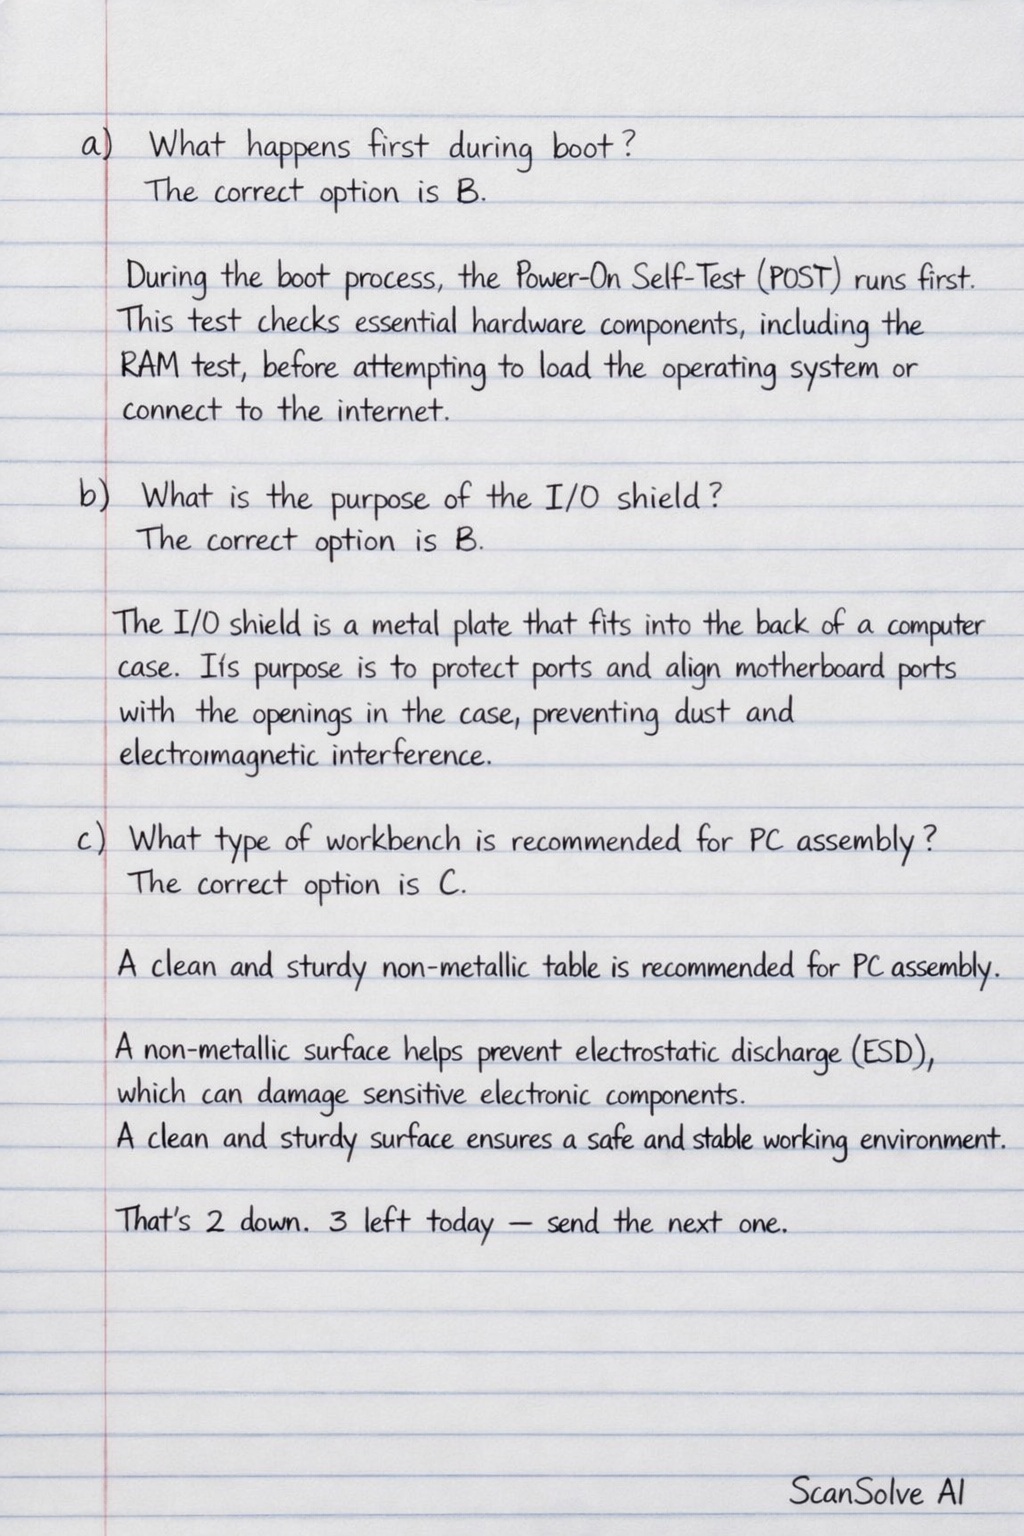 a) What happens first during boot?
The correct option is B.
During the boot process, the Power-On Self-Test (POST) runs first.
This test checks essential hardware components, including the
RAM test, before attempting to load the operating system or
connect to the internet.
b) What is the purpose of the I/O shield?
The correct option is B.
The I/O shield is a metal plate that fits into the back of a computer
case. It's purpose is to protect ports and align motherboard ports
with the openings in the case, preventing dust and
electromagnetic interference.
c) What type of workbench is recommended for PC assembly?
The correct option is C.
A clean and sturdy non-metallic table is recommended for PC assembly.
A non-metallic surface helps prevent electrostatic discharge (ESD),
which can damage sensitive electronic components.
A clean and sturdy surface ensures a safe and stable working environment.
That's 2 down. 3 left today — send the next one.
ScanSolve AI